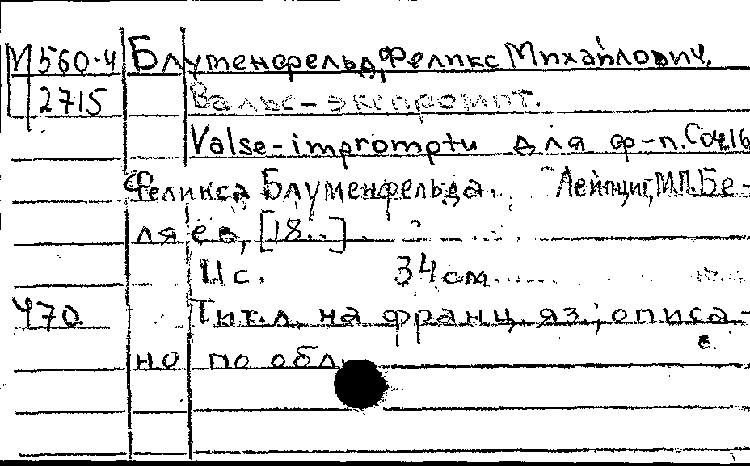 М560-4 Блуменфельд, Феликс Михайлович.
2715 Вальс-экспромпт.
Valse-impromptu для ф-п. Соч.16
Феликса Блуменфельда. Лейпциг, М.П. Бе-
ляев, [18..]
11 с. 34 см
470 Тит.л. на франц. яз.; описа-
но по обл.